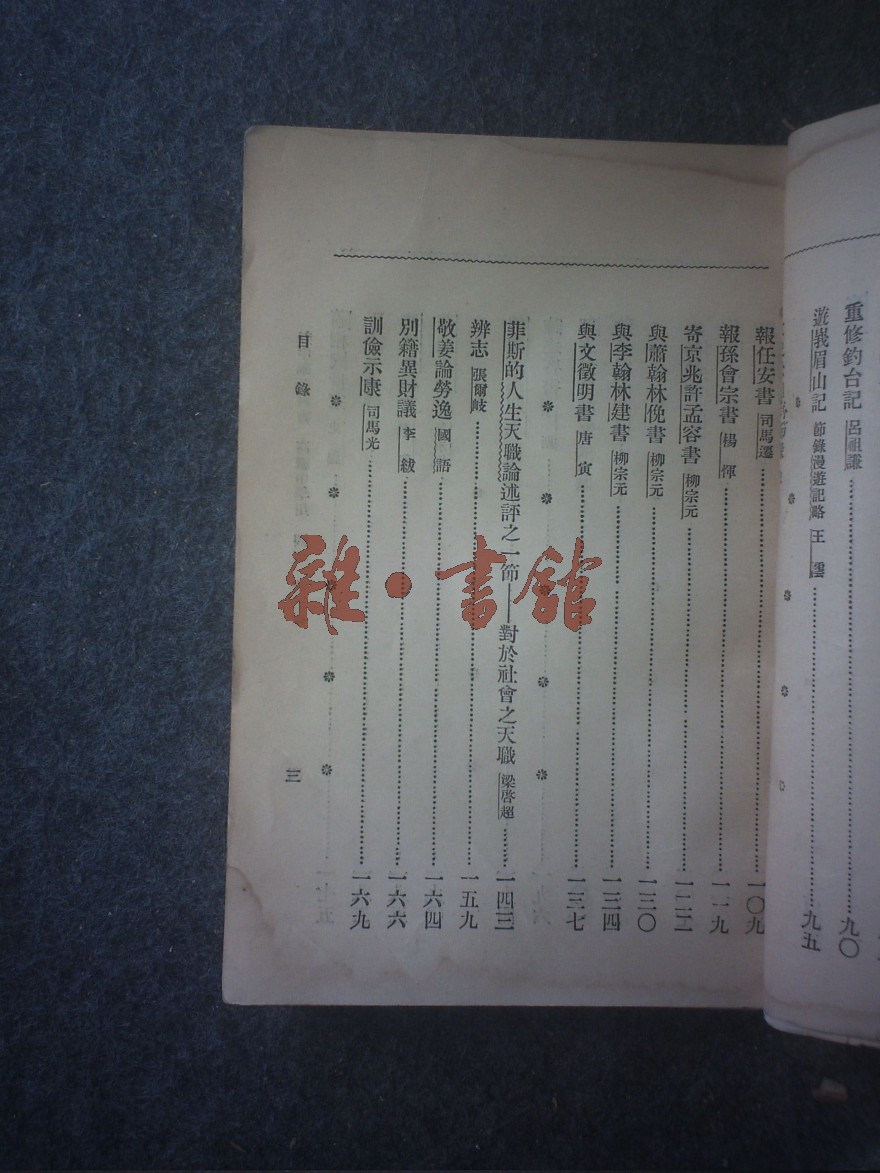 重修釣台記 呂祖謙 九〇
遊峩眉山記 節錄漫遊記略 王 九五
報任安書 司馬遷 一〇九
報孫會宗書 楊惲 一一九
寄京兆許孟容書 柳宗元
與蕭翰林俛書 柳宗元 一三〇
與李翰林建書 柳宗元 一三四
與文徵明書 唐寅 一三七
菲斯的人生天職論述評之一節——對於社會之天職 梁啓超 一四三
辨志 張爾岐 一五九
敬姜論勞逸 國語 一六四
別籍異財議 李紱 一六六
訓儉示康 司馬光 一六九
目錄 三
雜·書館